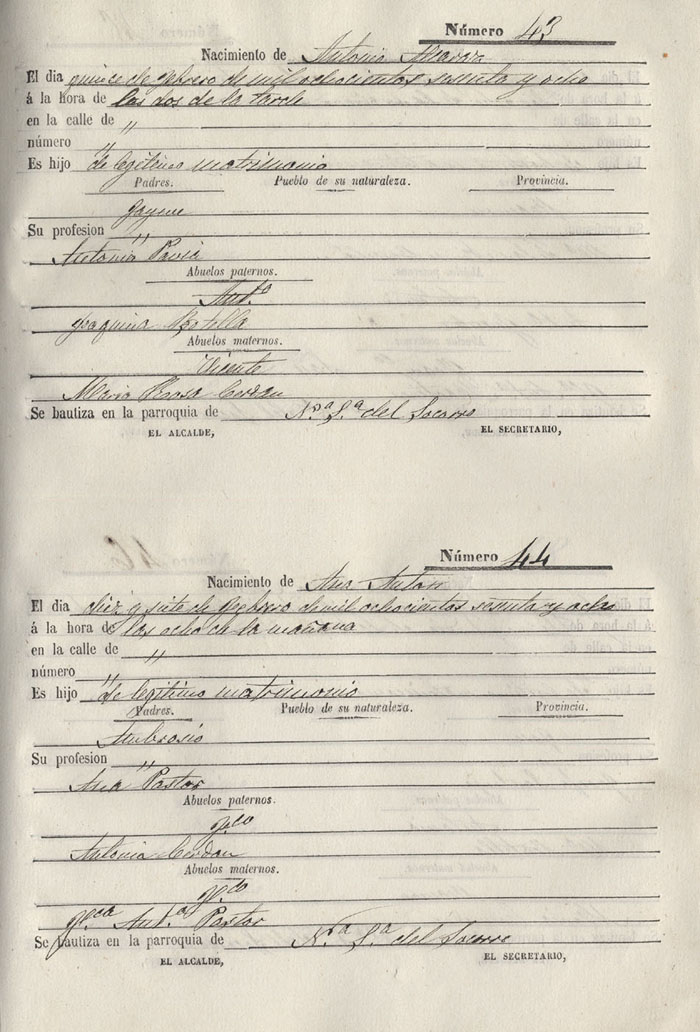 Número 43
Nacimiento de Antonio
El dia quince de Febrero de mil ochocientos sesenta y ocho
á la hora de las dos de la tarde
en la calle de "
número "
Es hijo de legitimo matrimonio
Padres. Pueblo de su naturaleza. Provincia.
Jayme
Su profesion "
Antonia Pavia
Abuelos paternos.
Ant.º
Joaquina Botella
Abuelos maternos.
Vicente
Maria Rosa Cerdan
Se bautiza en la parroquia de N.ª S.ª del Socorro
EL ALCALDE, EL SECRETARIO,
Número 44
Nacimiento de Ana Anton
El dia diez y siete de Febrero de mil ochocientos sesenta y ocho
á la hora de las ocho de la mañana
en la calle de "
número "
Es hijo de legitimo matrimonio
Padres. Pueblo de su naturaleza. Provincia.
Ambrosio
Su profesion "
Ana Pastor
Abuelos paternos.
Antonia Cerdan
Abuelos maternos.
Pastor
Se bautiza en la parroquia de N.ª S.ª del Socorro
EL ALCALDE, EL SECRETARIO,